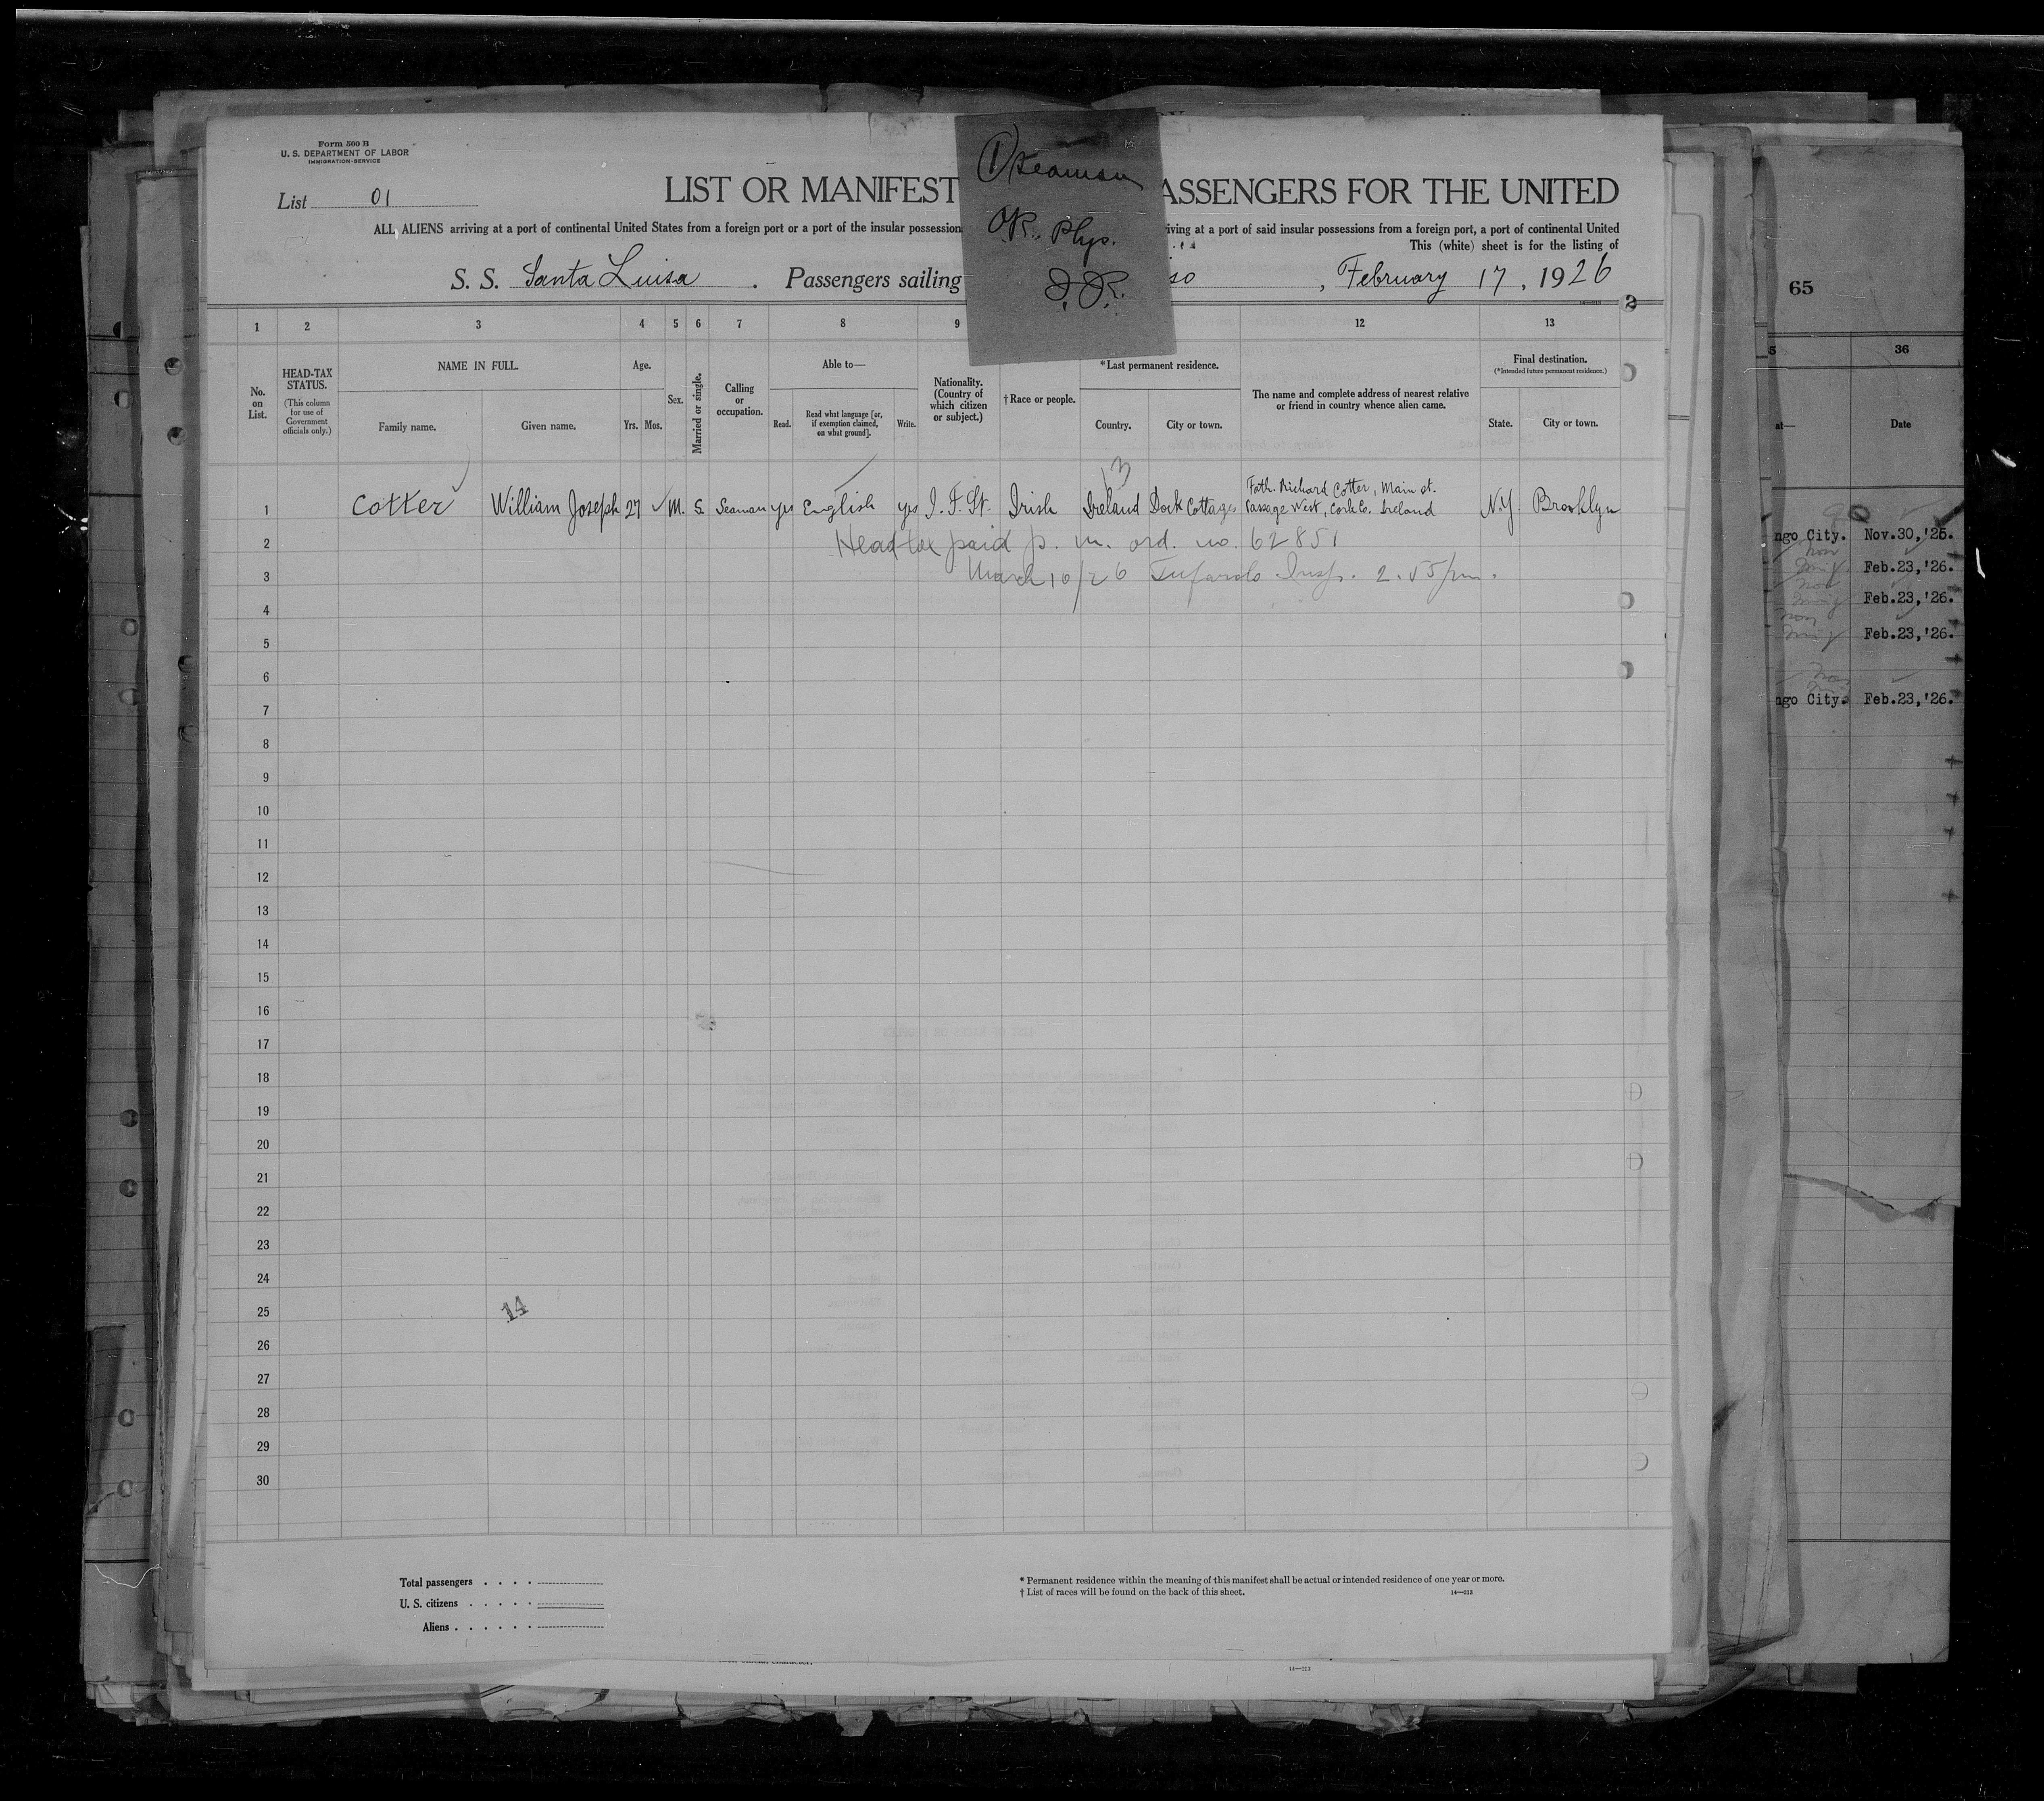 Form 500 B
U. S. DEPARTMENT OF LABOR
IMMIGRATION SERVICE
List 01
LIST OR MANIFEST ASSENGERS FOR THE UNITED
ALL ALIENS arriving at a port of continental United States from a foreign port or a port of the insular possession riving at a port of said insular possessions from a foreign port, a port of continental United
This (white) sheet is for the listing of
S. S. Santa Luisa . Passengers sailing so , February 17, 1926
1 Seaman
OK. Phys.
J.R.
2
65
1 2 3 4 5 6 7 8 9 12 13
No. on List.
HEAD-TAX STATUS.
(This column for use of Government officials only.)
NAME IN FULL.
Family name. Given name.
Age.
Yrs. Mos.
Sex.
Married or single.
Calling or occupation.
Able to—
Read. Read what language [or, if exemption claimed, on what ground]. Write.
Nationality. (Country of which citizen or subject.)
†Race or people.
*Last permanent residence.
Country. City or town.
The name and complete address of nearest relative or friend in country whence alien came.
Final destination.
(*Intended future permanent residence.)
State. City or town.
13
1 Cotter William Joseph 27 M. S. Seaman yes English yes I. F. St. Irish Ireland Dock Cottages Fath. Richard Cotter, Main st. Passage West, Cork Co. Ireland N.Y. Brooklyn
2 Head tax paid p. m. ord. no. 62851
3 March 10/26 Insp. 2.55 pm.
4
5
6
7
8
9
10
11
12
13
14
15
16
17
18
19
20
21
22
23
24
25
26
27
28
29
30
14
Total passengers . . . .
U. S. citizens . . . . .
Aliens . . . . . .
* Permanent residence within the meaning of this manifest shall be actual or intended residence of one year or more.
† List of races will be found on the back of this sheet.
14—213
14—213
5 36
at— Date
ngo City. Nov.30,'25.
Feb.23,'26.
Feb.23,'26.
Feb.23,'26.
ngo City. Feb.23,'26.